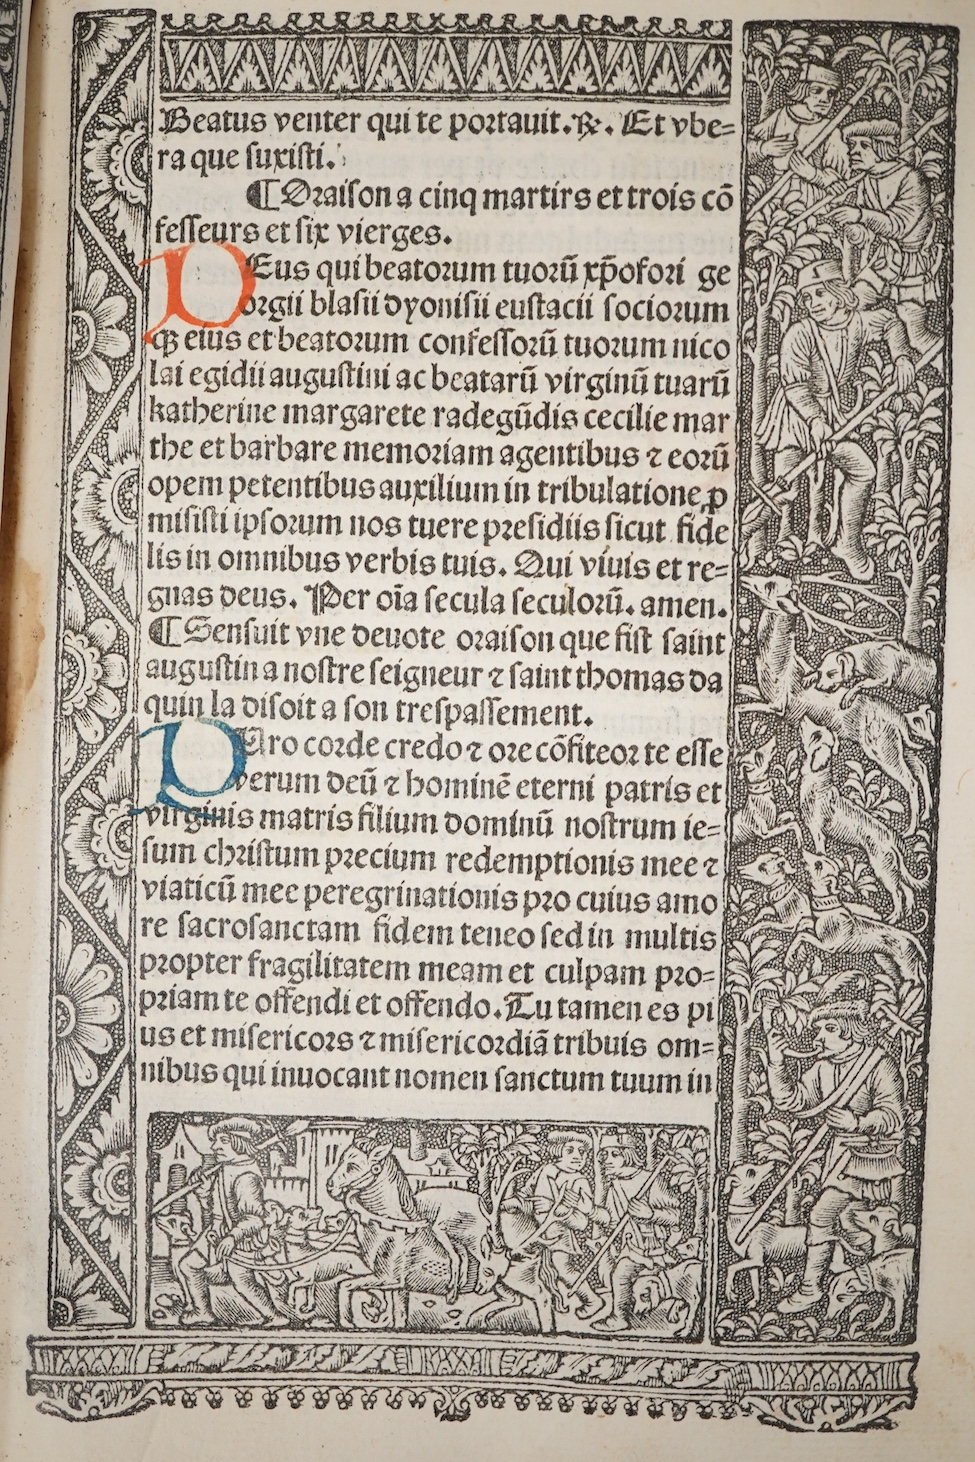 Beatus venter qui te portauit. ℟. Et vbe=
ra que suxisti.
¶ Oraison a cinq martirs et trois cō
fesseurs et six vierges.
DEus qui beatorum tuorū xp̄ofori ge
orgii blasii dyonisii eustacii sociorum
qꝫ eius et beatorum confessorū tuorum nico
lai egidii augustini ac beatarū virginū tuarū
katherine margarete radegūdis cecilie mar
the et barbare memoriam agentibus ⁊ eorū
opem petentibus auxilium in tribulatione ꝓ
misisti ipsorum nos tuere presidiis sicut fide
lis in omnibus verbis tuis. Qui viuis et re=
gnas deus. Per oīa secula seculorū. amen.
¶ Sensuit vne deuote oraison que fist saint
augustin a nostre seigneur ⁊ saint thomas da
quin la disoit a son trespassement.
DEro corde credo ⁊ ore cōfiteor te esse
verum deū ⁊ hominē eterni patris et
virginis matris filium dominū nostrum ie=
sum christum precium redemptionis mee ⁊
viaticū mee peregrinationis pro cuius amo
re sacrosanctam fidem teneo sed in multis
propter fragilitatem meam et culpam pro=
priam te offendi et offendo. Tu tamen es pi
us et misericors ⁊ misericordiā tribuis om=
nibus qui inuocant nomen sanctum tuum in